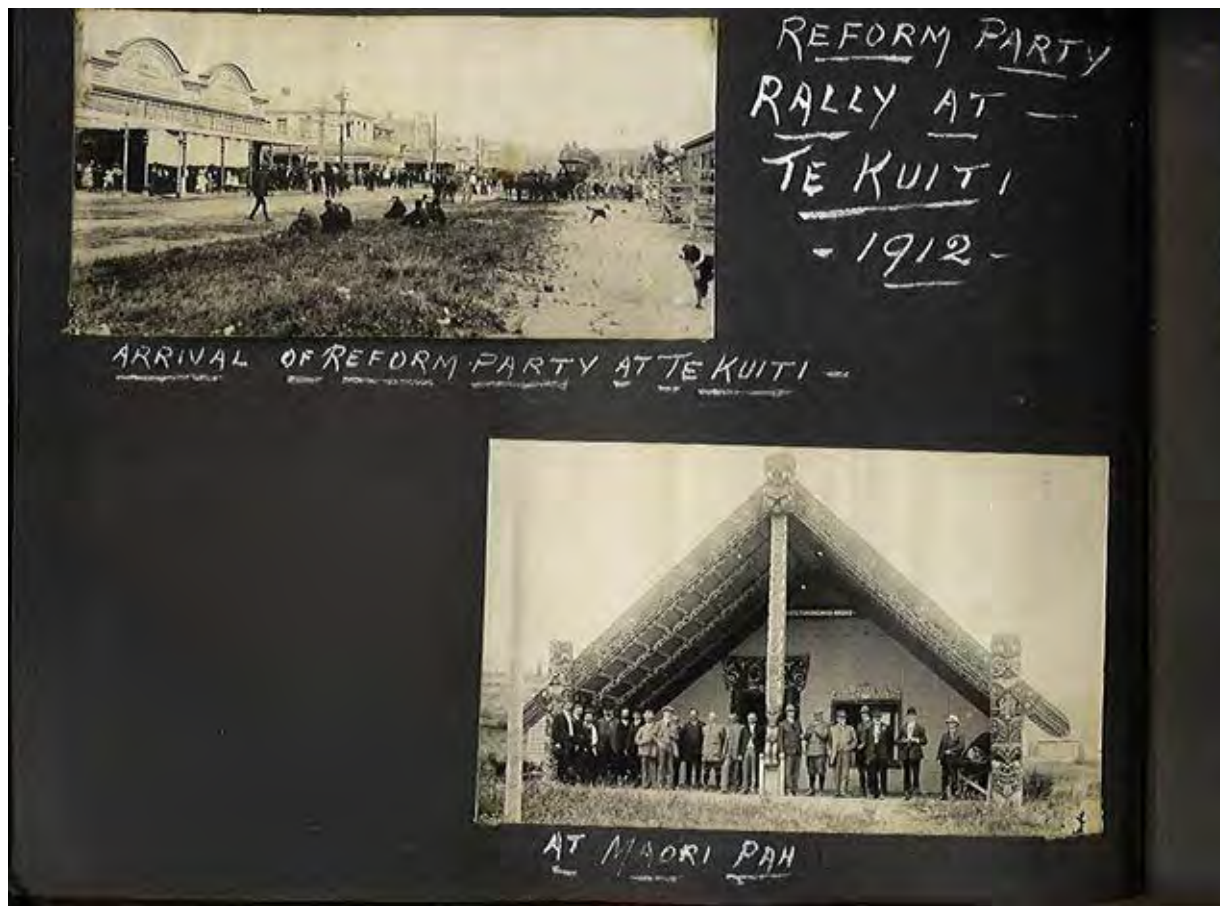 REFORM PARTY
RALLY AT –
TE KUITI
- 1912 -
ARRIVAL OF REFORM PARTY AT TE KUITI –
AT MAORI PAH